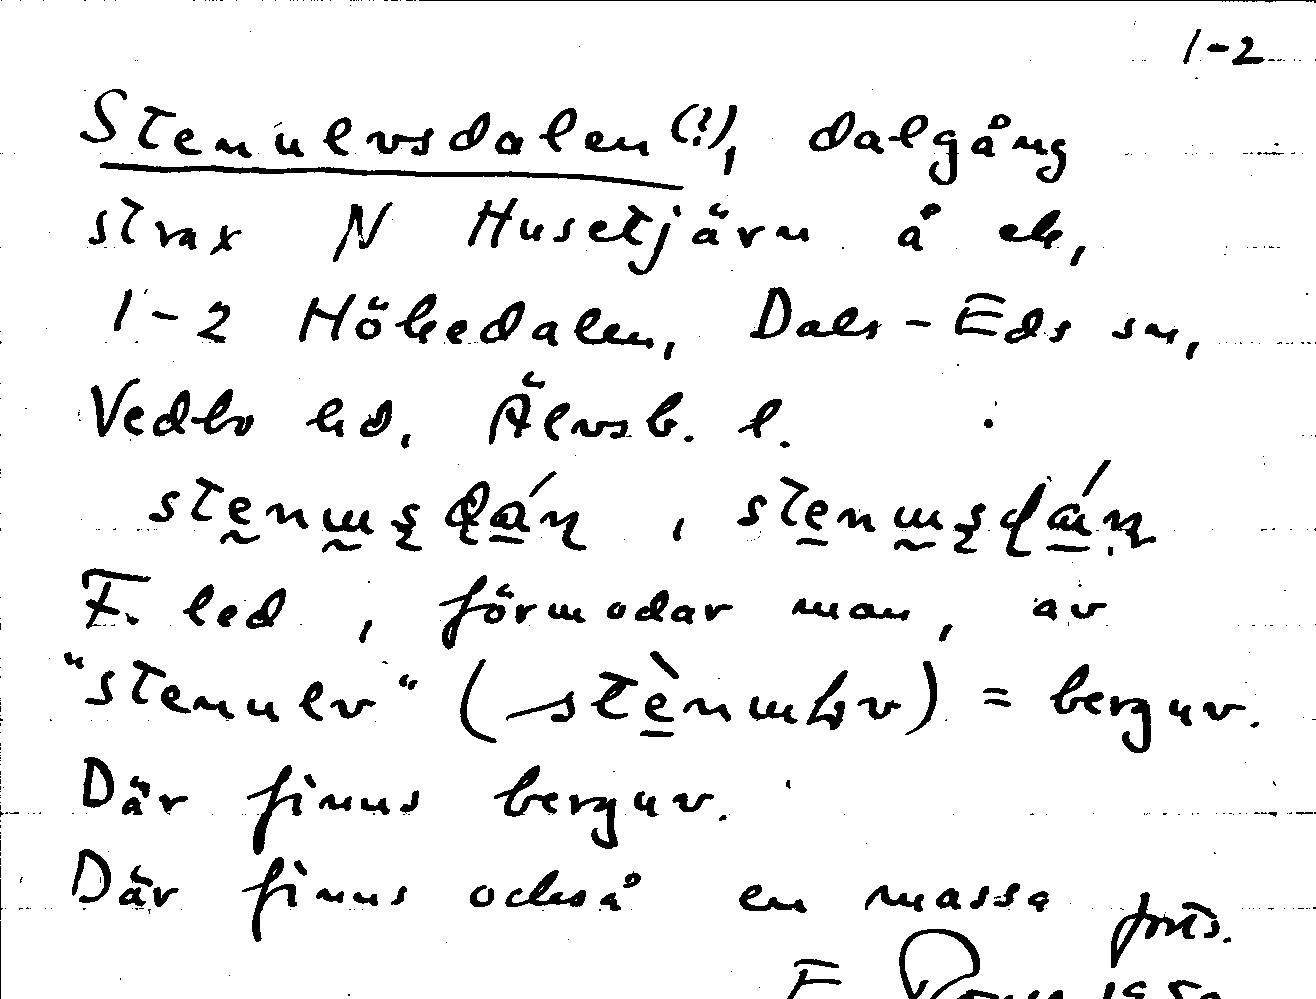 1-2
Stenulvsdalen(?), dalgång
strax N Husetjärn å ek,
1-2 Hökedalen, Dals-Eds sn,
Vedbo hd, Älvsb. l.
F. led, förmodar man, av
"stenulv" ( ) = berguv.
Där finns berguv.
Där finns också en massa
forts.